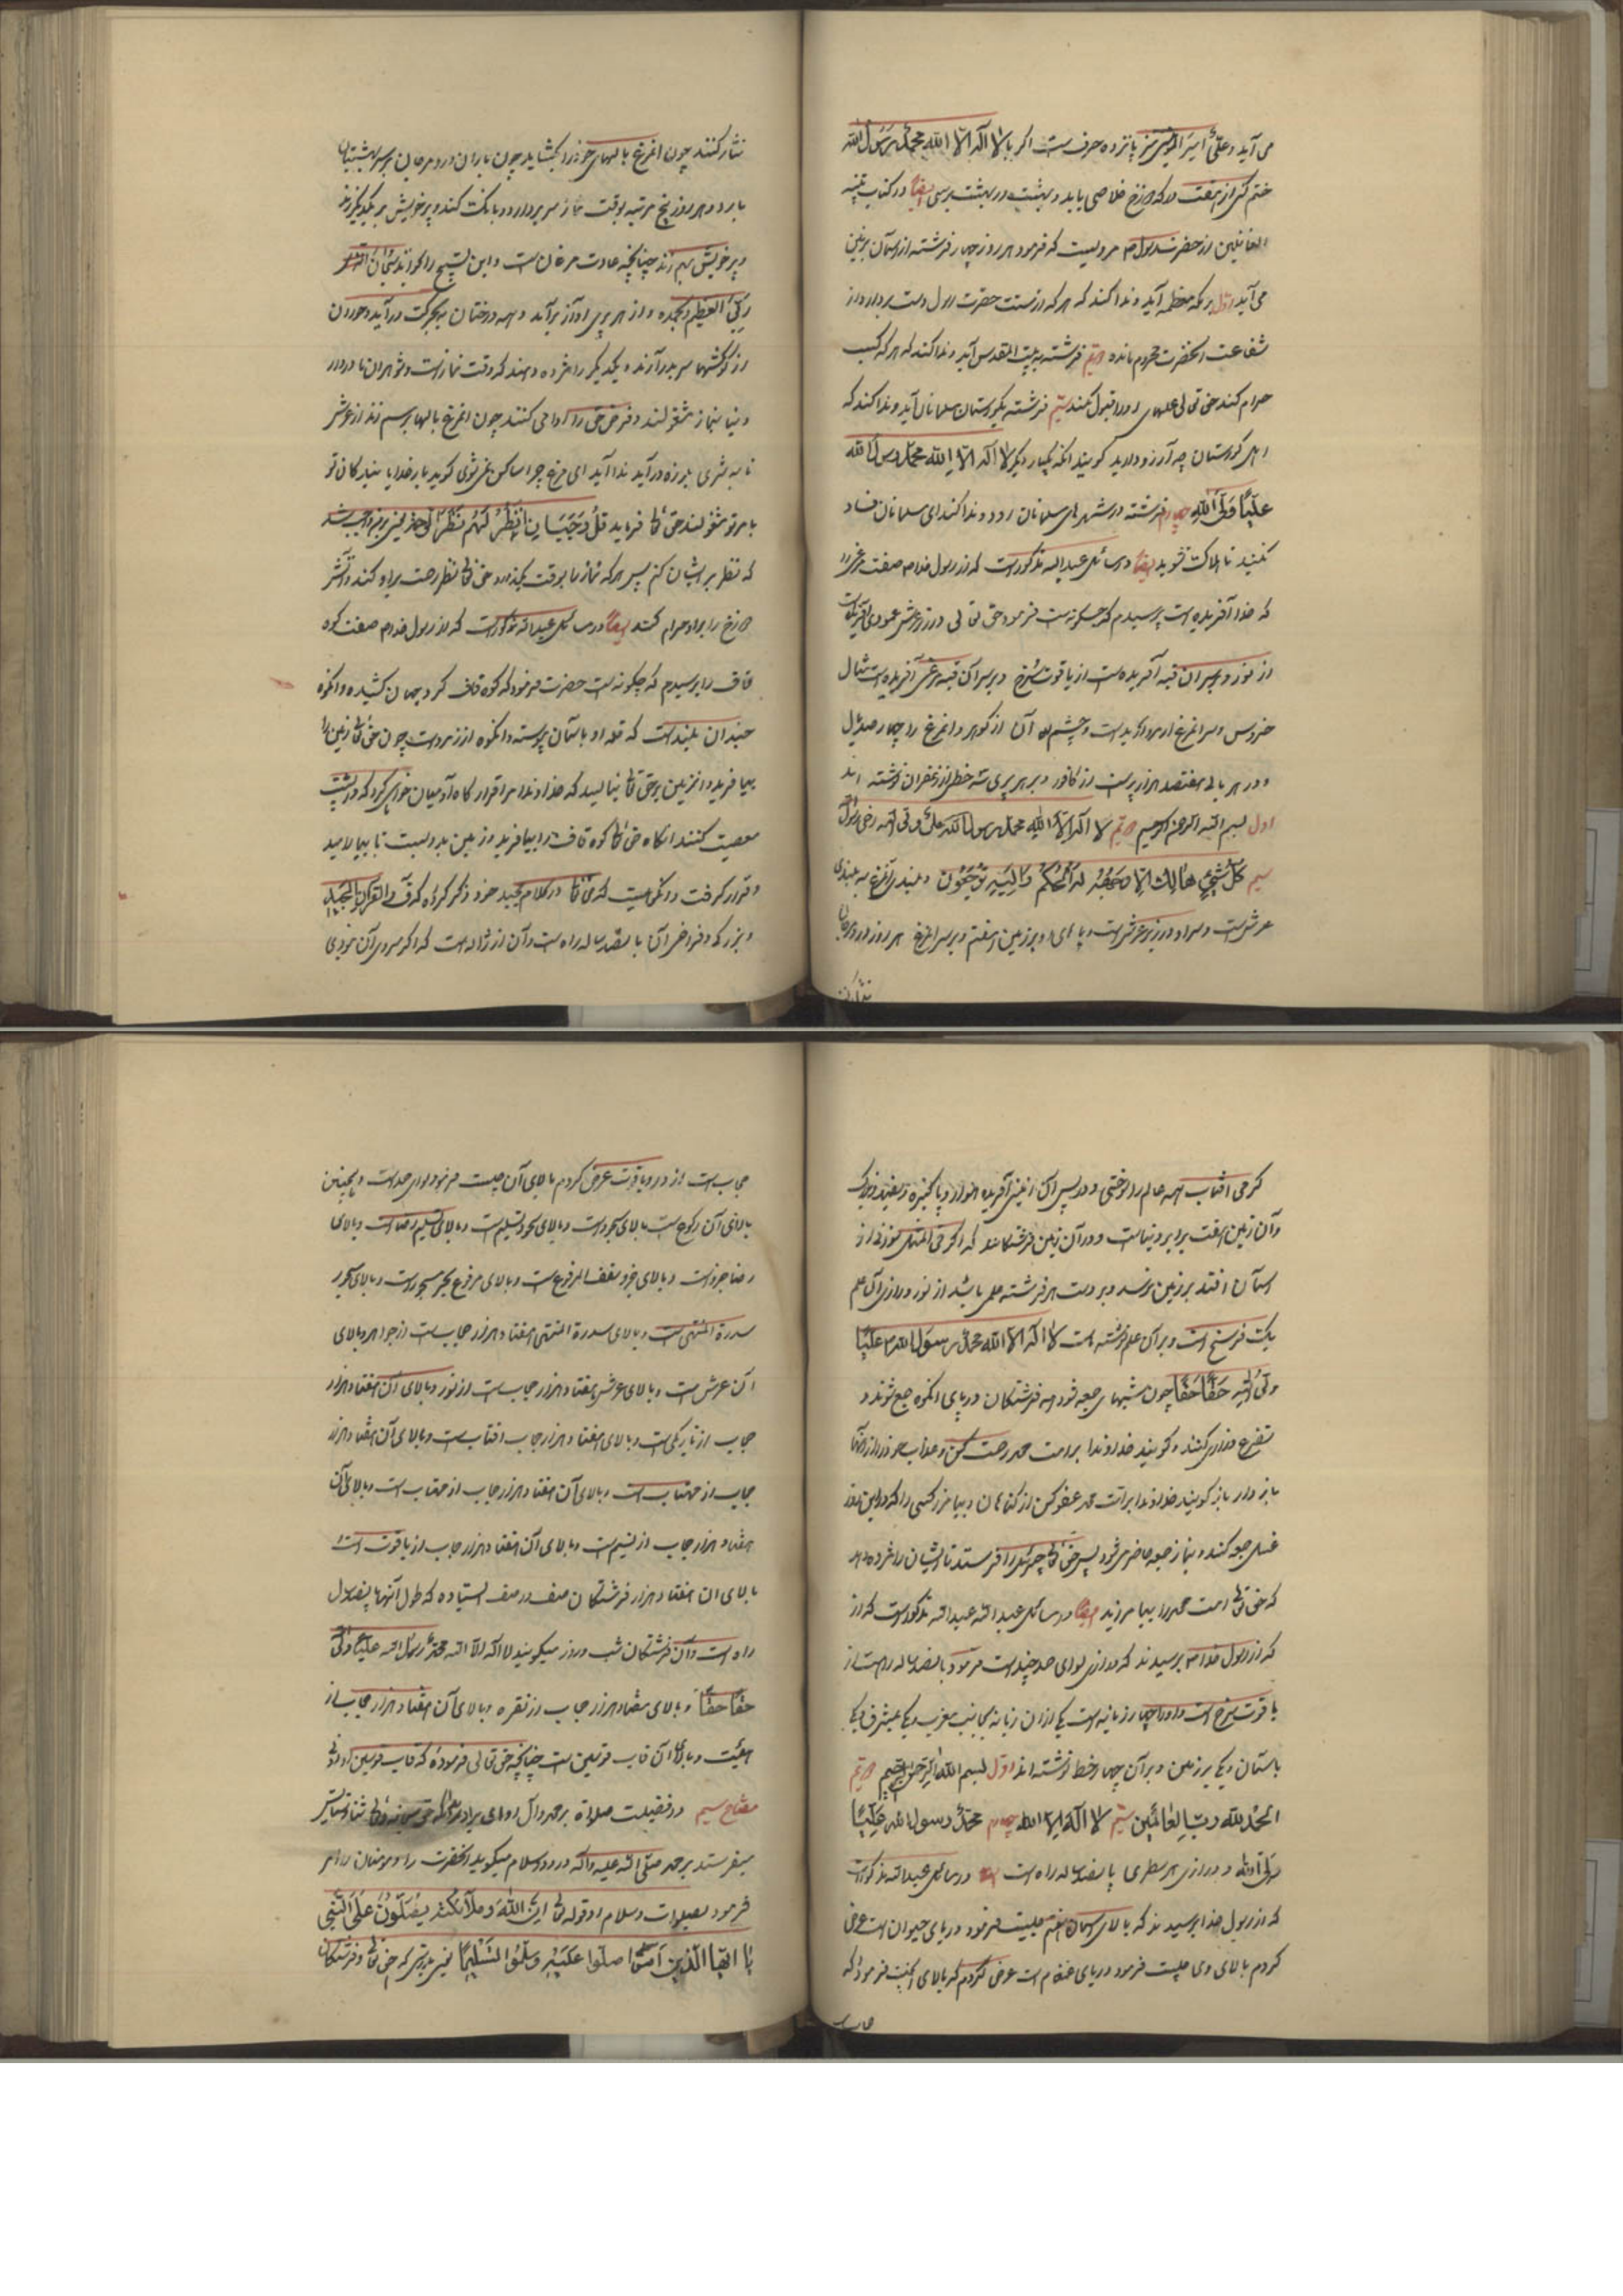 می آید و علیّ امیر المؤمنین پانزده حرف ست اکر با لا اله الا الله محمد رسول الله
ختم کنی از هفت درکه دوزخ خلاصی یابد و بهشت در بهشت برسی ایضاً در کتاب تنبیه
الغافلین از حضرت رسول مرویست که فرمود هر روز چهار فرشته از آسمان بزمین
می آید اول بر مکه معظمه آید و ندا کند که هر که از سنت حضرت رسول دست بردارد از
شفاعت آنحضرت محروم مانده دویم فرشته به بیت المقدس آید و ندا کند که هر که کسب
حرام کند حق تعالی عملهای او را قبول نکند سیم فرشته بکورستان مسلمانان آید و ندا کند که
ای اهل کورستان چه آرزو دارید کویند آنکه یکبار دیکر لا اله الا الله محمد رسول الله
علیّاً ولیّ الله چهارم فرشته در شهرهای مسلمانان رود و ندا کند ای مسلمانان فساد
نکنید تا هلاکت نشوید ایضاً در مسائل عبدالله مذکورست که از رسول خدا صفت مرغی را
که خدا آفریده است پرسیدم که چکونه ست فرمود حق تعالی در زیر عرش عمودی آفریده است
از نور و بر سر آن قبه آفریده ست از یاقوت سرخ و بر سر آن قبه مرغی آفریده است مثال
خروس و سر آنمرغ از مروارید است و چشم آن از کوهر و آنمرغ را چهار صد بال
و در هر بالی هفتصد هزار پرست از کافور و بر هر پری سه خط از زعفران نوشته اند
اول بسم الله الرحمن الرحیم دویم لا اله الا الله محمد رسول الله علی ولی الله
سیم کل شیء هالک الا وجهه له الحکم والیه ترجعون و بلندی آنمرغ به بلندی
عرش ست و سر او در زیر عرش ست و پاهای او بر زمین هفتم و بر سر آنمرغ هر روز در و مرجان
نثار کنند
نثار کنند چون آنمرغ بالهای خود را بکشاید چون باران در و مرجان بر سر بهشتیان
بارد و هر روز پنج مرتبه بوقت نماز سر بردارد و بانکت کند و پر خویش بر یکدیکر زند
و پر خویش بهم زند چنانچه عادت مرغان ست و این تسبیح را خواند سبحان الله
ربی العظیم و بحمده و از هر پری آواز برآید و همه درختان بحرکت درآید و حوران
از کوشکها سر بدر آرند و یکدیکر را مژده دهند که وقت نماز ست و شوهران ما در دار
دنیا بنماز مشغولند و فرض حق را ادا می کنند چون آنمرغ بالها بر هم زند از عرش
تا به ثری بلرزه درآید ندا آید ای مرغ چرا ساکن نمی شوی کوید بار خدایا بندکان تو
بامر تو مشغولند حق تعالی فرماید
که نظر بر ایشان کنم پس هر که نماز را بوقت بکذارد حق تعالی نظر رحمت بر او کند و آتش
دوزخ را بر او حرام کند ایضاً در مسائل عبدالله مذکورست که از رسول خدا صفت کوه
قاف را پرسیدم که چکونه است حضرت فرمود که کوه قاف کرد جهان کشیده و آنکوه
چندان بلندست که قله او باسمان پیوسته و آنکوه از زمردست چون حق تعالی زمین را
بیافرید و زمین برحق تعالی بنالید که خداوندا مرا قرارکاه آدمیان خواهی کرد که در پشت
معصیت کنند آنکاه حق تعالی کوه قاف را بیافرید و زمین بدو بست تا بیارامید
و قرار کرفت و حق تعالی در کلام مجید خود ذکر کرده که ق والقرآن المجید
و بزرکی و فراخی آن پانصد ساله راه ست و آن از ژاله است که اکر سردی آن نبودی
کرمی آفتاب همه عالم را سوختی و در پس آن زمینی آفریده هموار و پاکیزه و سفید
و آن زمین هفت برابر دنیاست و در آن زمین فرشتکانند که اکر فی المثل سوزنی از
آسمان افتد بر زمین نرسد و بر دست هر فرشته علمی باشد از نور و درازی آن علم
یک فرسخ است و بر آن علم نوشته است لا اله الا الله محمد رسول الله علیّاً
ولیّ الله حقّاً حقّاً چون شبهای جمعه شود همه فرشتکان در پای آنکوه جمع شوند و
تضرع و زاری کنند و کویند خداوندا بر امت محمد رحمت کن و عذاب خود را از آنها
باز دار باز کویند خداوندا بر امت محمد عفو کن از کناهان و بیامرز کسی را که در این روز
غسل جمعه کند و بنماز جمعه حاضر می شود پس حق تعالی جبرئیل را فرستد تا ایشان را مژده دهد
که حق تعالی امت محمد را بیامرزید ایضاً در مسائل عبدالله عبدالله مذکورست که از
که از رسول خدا پرسیدند که درازی لوای حمد چندست فرمود پانصد ساله راهست از
یاقوت سرخ است و او را چهار زبانه است یکی از آن زبانه بجانب مغرب و یکی بمشرق و یکی
باسمان و یکی بر زمین و بر آن چهار خط نوشته اند اول بسم الله الرحمن الرحیم دویم
الحمد لله رب العالمین سیم لا اله الا الله چهارم محمد رسول الله علیّاً
ولی الله و درازی هر سطری پانصد ساله راه ست ایضاً در مسائل عبدالله مذکورست
که از رسول خدا پرسیدند که بالای آسمان هفتم چیست فرمود دریای حیوان است عرض
کردم بالای وی چیست فرمود دریای است عرض کردم که بالای آن چیست فرمود که
حجاب
حجاب ست از در و یاقوت عرض کردم بالای آن چیست فرمود لوای حمد است و همچنین
بالای آن رکوع ست بالای سجودست و بالای سجود تسلیم ست و بالای تسلیم رضاست و بالای
رضا جزوست و بالای جزو سقف المرفوع ست و بالای مرفوع بحر مسجورست و بالای مسجور
سدرة المنتهی ست و بالای سدرة المنتهی هفتاد هزار حجاب ست از جواهر و بالای
آن عرش ست و بالای عرش هفتاد هزار حجاب ست از نور و بالای آن هفتاد هزار
حجاب از تاریکی ست و بالای هفتاد هزار حجاب آفتاب ست و بالای آن هفتاد هزار
حجاب از مهتاب ست و بالای آن هفتاد هزار حجاب از مهتاب ست و بالای آن
هفتاد هزار حجاب از نسیم ست و بالای آن هفتاد هزار حجاب از یاقوت است
بالای آن هفتاد هزار فرشتکان صف در صف ایستاده که طول آنها پانصد سال
راه ست و آن فرشتکان شب و روز میکویند لا اله الا الله محمد رسول الله علیّاً ولی الله
حقّاً حقّاً و بالای هفتاد هزار حجاب از نقره و بالای آن هفتاد هزار حجاب از
هیئت و بالای آن قاب قوسین ست چنانچه حق تعالی فرموده که قاب قوسین او ادنی
مفتاح سیم در فضیلت صلوة بر محمد و آل او ای برادر بدانکه حق سبحانه و تعالی ثنا و ستایش
میفرستد بر محمد صلی الله علیه و آله و درود و سلام میکوید آنحضرت را و مومنان را امر
فرمود بصلوات و سلام او قوله تعالی ان الله وملائکته یصلّون علی النبی
یا ایها الذین آمنوا صلوا علیه وسلموا تسلیما یعنی بدرستی که حق تعالی و فرشتکان